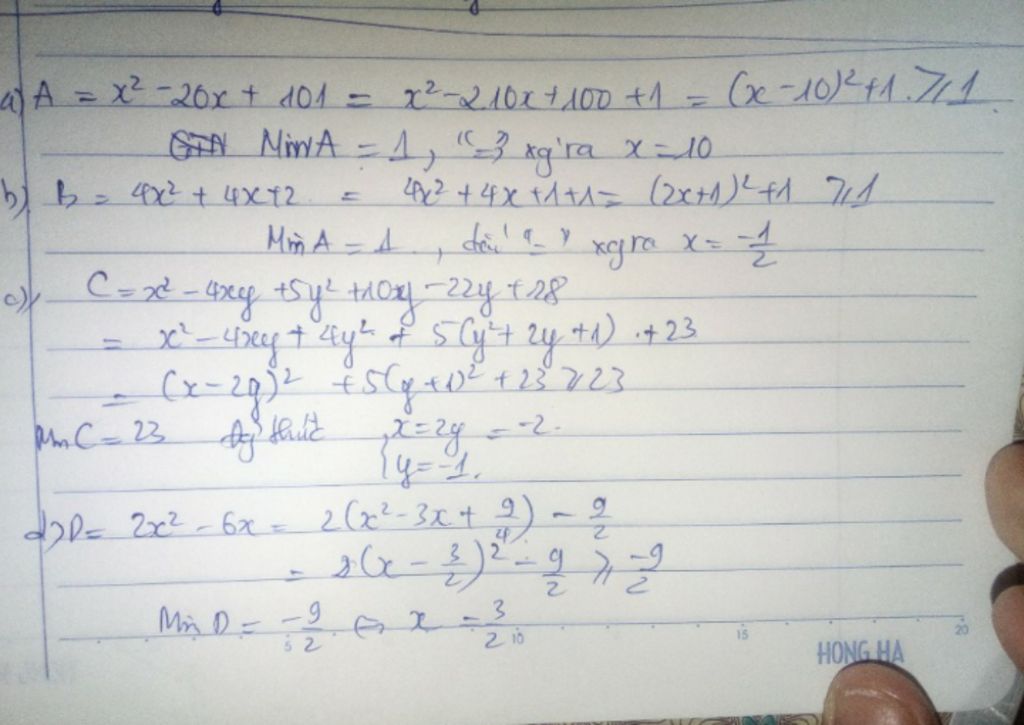 a) A = x² - 20x + 101 = x² - 210x + 100 + 1 = (x - 10)² + 1 ≥ 1
Min A = 1, "=" xg ra x = 10
b) B = 4x² + 4x + 2 = 4x² + 4x + 1 + 1 = (2x+1)² + 1 ≥ 1
Min A = 1, dấu "=" xg ra x = -1/2
c) C = x² - 4xy + 5y² + 10xy - 22y + 28
= x² - 4xy + 4y² + 5(y² + 2y + 1) + 23
= (x - 2y)² + 5(y + 1)² + 23 ≥ 23
Min C = 23 thức x = 2y = -2.
y = -1.
d) D = 2x² - 6x = 2(x² - 3x + 9/4) - 9/2
= 2(x - 3/2)² - 9/2 ≥ -9/2
Min D = -9/2 ⇔ x = 3/2
5 10 15 20
HONG HA